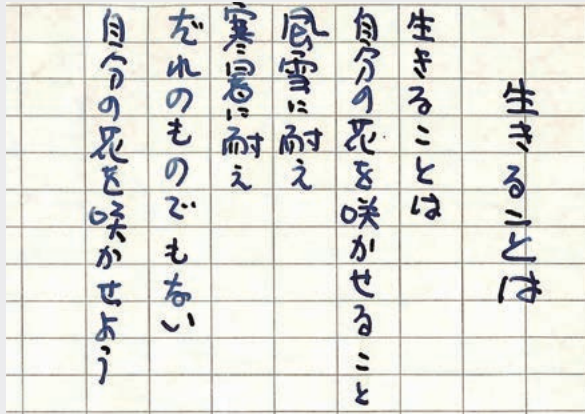 生きることは
生きることは
自分の花を咲かせること
風雪に耐え
寒暑に耐え
だれのものでもない
自分の花を咲かせよう